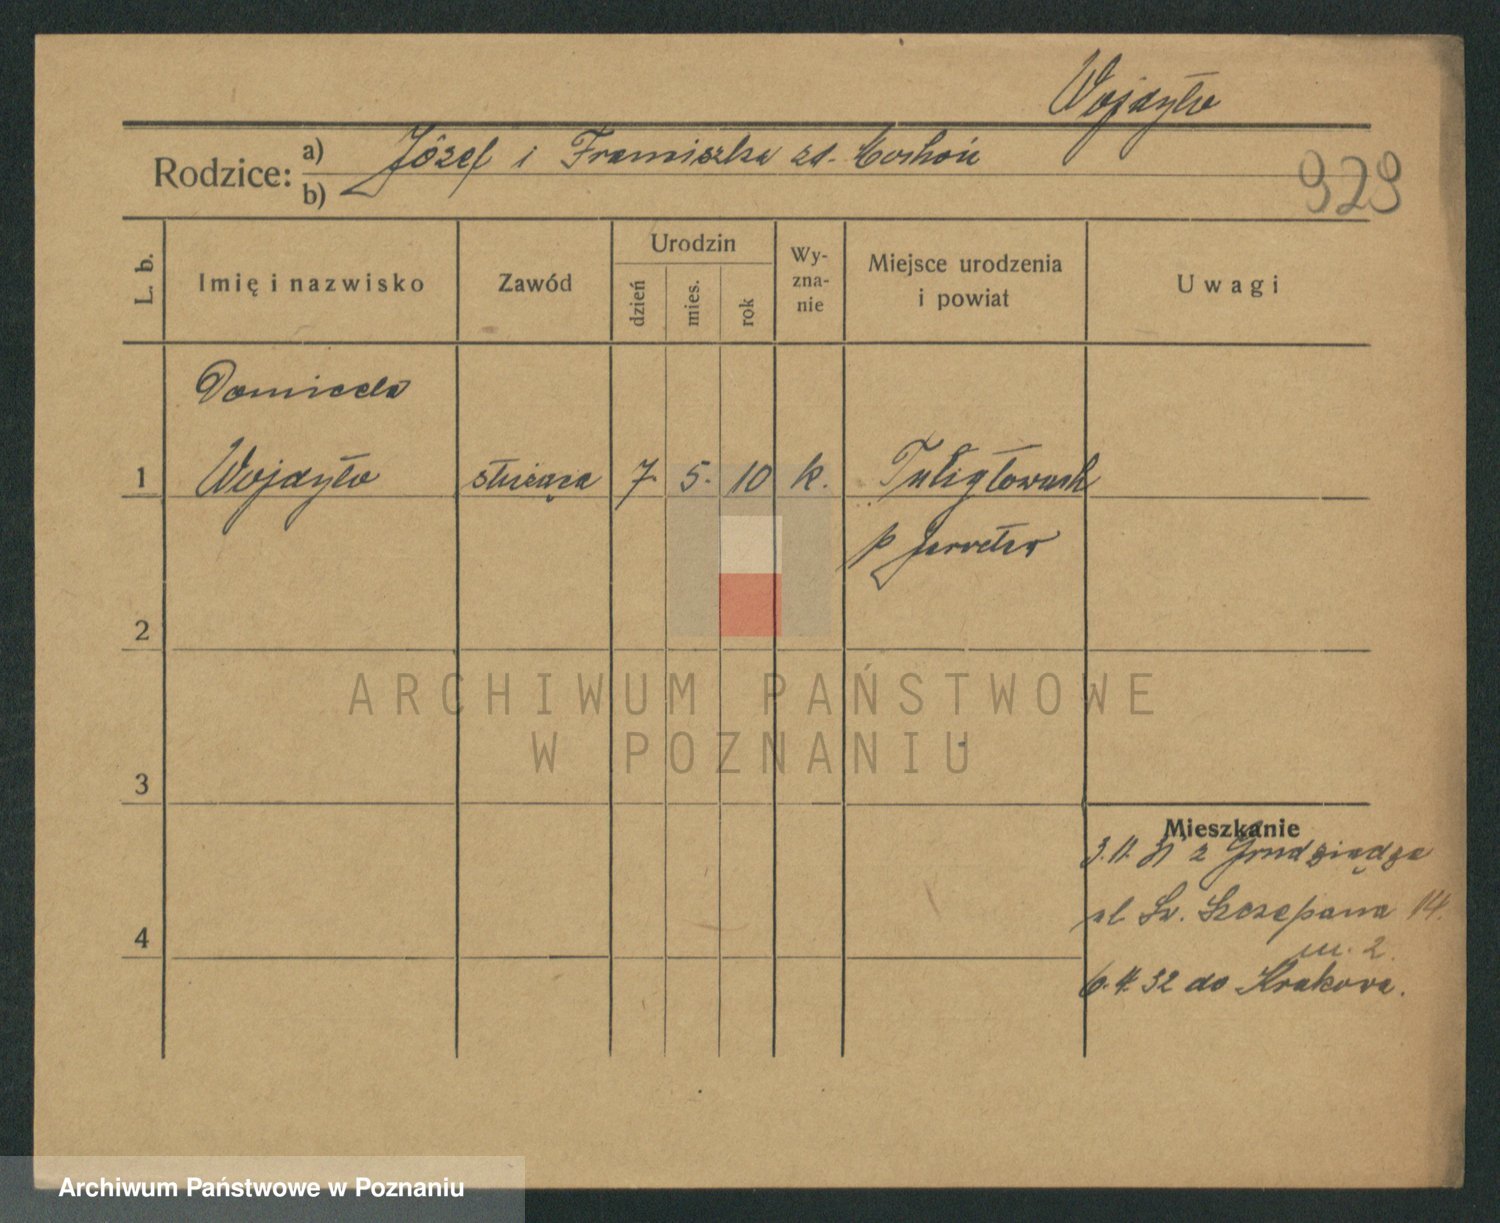 Wojdyło
Rodzice: a) Józef i Franciszka zd.
b)
929
L. b.
Imię i nazwisko
Zawód
Urodzin
dzień
mies.
rok
Wy-
zna-
nie
Miejsce urodzenia
i powiat
Uwagi
Domicela
1 Wojdyło służąca 7. 5. 10 k. Tuligłowach
p Jarosław
2
3
4
Mieszkanie
3.11. 31 z Grudziądza
ul. Św. Szczepana 14.
m. 2.
6.4.32 do Krakowa.
ARCHIWUM PAŃSTWOWE
W POZNANIU
Archiwum Państwowe w Poznaniu